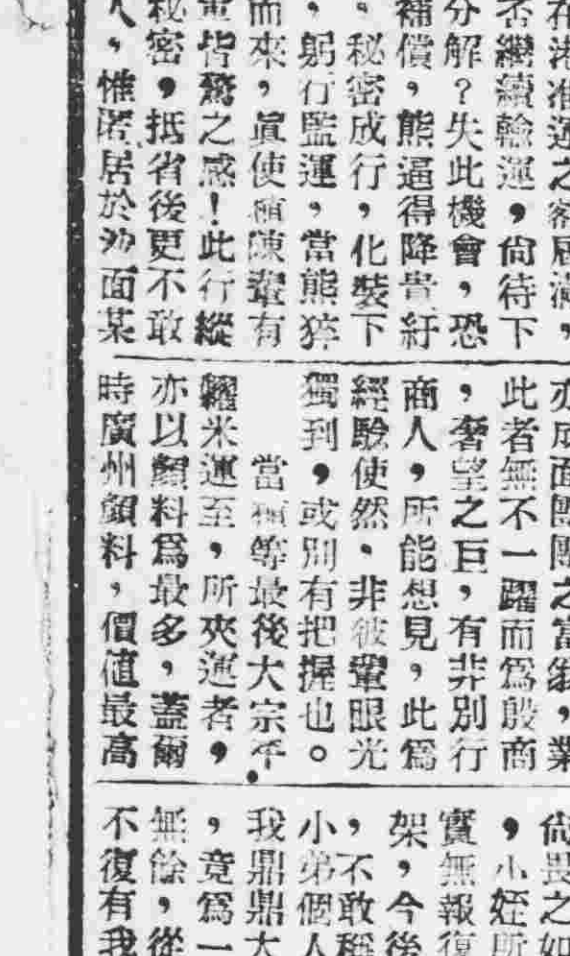 在港准運之客居滿，
否繼續輸運，尙待下
分解？失此機會，恐
補償，熊逼得降貴紆
。秘密成行，化裝下
，躬行監運，當熊猝
而來，眞使賴陳輩有
皆驚之感！此行縱
秘密，抵省後更不敢
人，惟匿居於沙面某
亦成面團團之富翁，業
此者無不一躍而爲殷商
，奢望之巨，有非別行
商人，所能想見，此爲
經驗使然。非彼輩眼光
獨到，或別有把握也。
當賴等最後大宗平
糶米運至，所夾運者，
亦以顏料爲最多，蓋爾
時廣州顏料，價値最高
尙畏之如
，小姪所
實無報復
架，今後
，不敢稱
小弟個人
我鼎鼎大
，竟爲一
無餘，從
不復有我